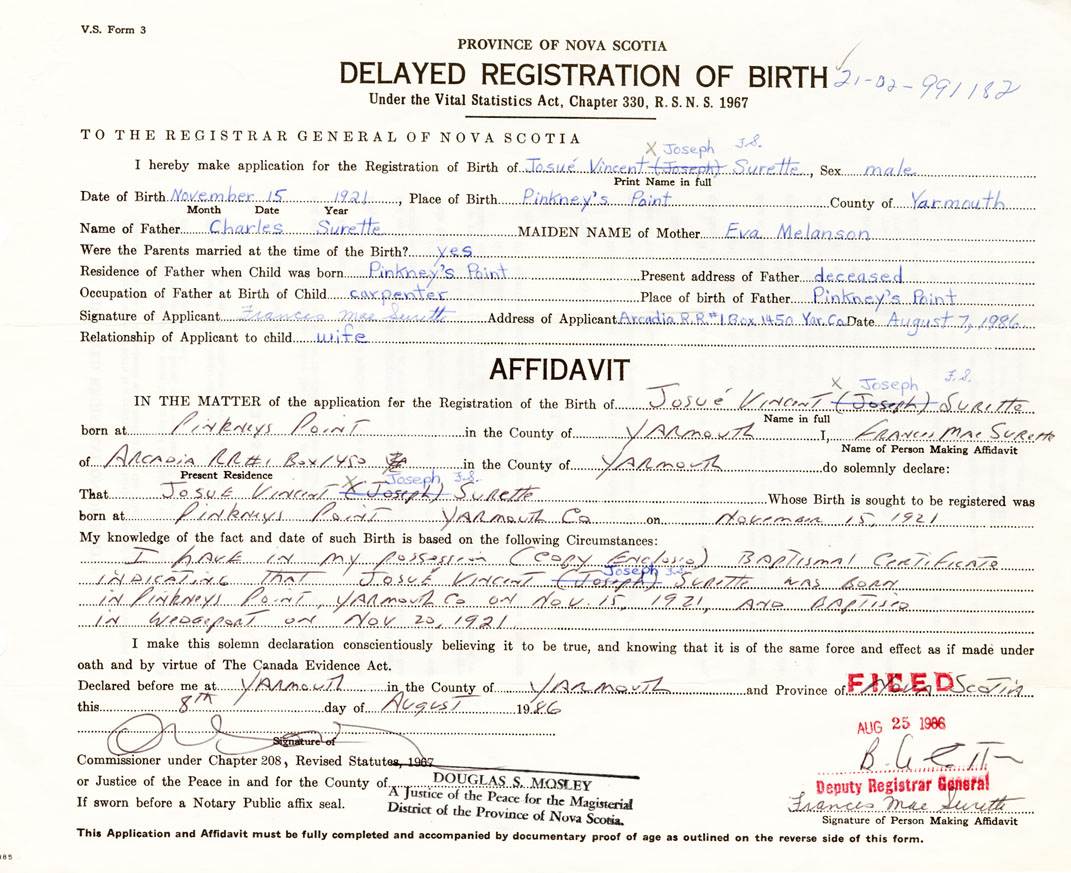 V.S. Form 3
PROVINCE OF NOVA SCOTIA
DELAYED REGISTRATION OF BIRTH 21-02-991182
Under the Vital Statistics Act, Chapter 330, R.S.N.S. 1967
TO THE REGISTRAR GENERAL OF NOVA SCOTIA
X Joseph F.S.
I hereby make application for the Registration of Birth of Josué Vincent (Joseph) Surette, Sex male
Print Name in full
Date of Birth November 15 1921, Place of Birth Pinkney's Point County of Yarmouth
Month Date Year
Name of Father Charles Surette MAIDEN NAME of Mother Eva Melanson
Were the Parents married at the time of the Birth? yes
Residence of Father when Child was born Pinkney's Point Present address of Father deceased
Occupation of Father at Birth of Child carpenter Place of birth of Father Pinkney's Point
Signature of Applicant Frances Mae Surette Address of Applicant Arcadia R.R#1 Box 1450 Yar. Co Date August 7, 1986
Relationship of Applicant to child wife
AFFIDAVIT
X Joseph F.S.
IN THE MATTER of the application for the Registration of the Birth of Josué Vincent (Joseph) Surette
Name in full
born at Pinkneys Point in the County of Yarmouth I, Frances Mae Surette
Name of Person Making Affidavit
of Arcadia RR#1 Box 1450 in the County of Yarmouth do solemnly declare:
Present Residence X Joseph F.S.
That Josue Vincent (Joseph) Surette Whose Birth is sought to be registered was
born at Pinkneys Point Yarmouth Co on November 15, 1921
My knowledge of the fact and date of such Birth is based on the following Circumstances:
I have in my possession (copy enclosed) Baptismal Certificate
Joseph F.S.
indicating that Josué Vincent (Joseph) Surette was born
in Pinkneys Point, Yarmouth Co on Nov. 15, 1921, and Baptised
in Wedgeport on Nov 20, 1921
I make this solemn declaration conscientiously believing it to be true, and knowing that it is of the same force and effect as if made under
oath and by virtue of The Canada Evidence Act.
Declared before me at Yarmouth in the County of Yarmouth and Province of Nova Scotia
FILED
this 8th day of August 1986
AUG 25 1986
Signature of
Commissioner under Chapter 208, Revised Statutes, 1967
or Justice of the Peace in and for the County of
DOUGLAS S. MOSLEY
A Justice of the Peace for the Magisterial
District of the Province of Nova Scotia.
Deputy Registrar General
If sworn before a Notary Public affix seal.
Frances Mae Surette
Signature of Person Making Affidavit
This Application and Affidavit must be fully completed and accompanied by documentary proof of age as outlined on the reverse side of this form.